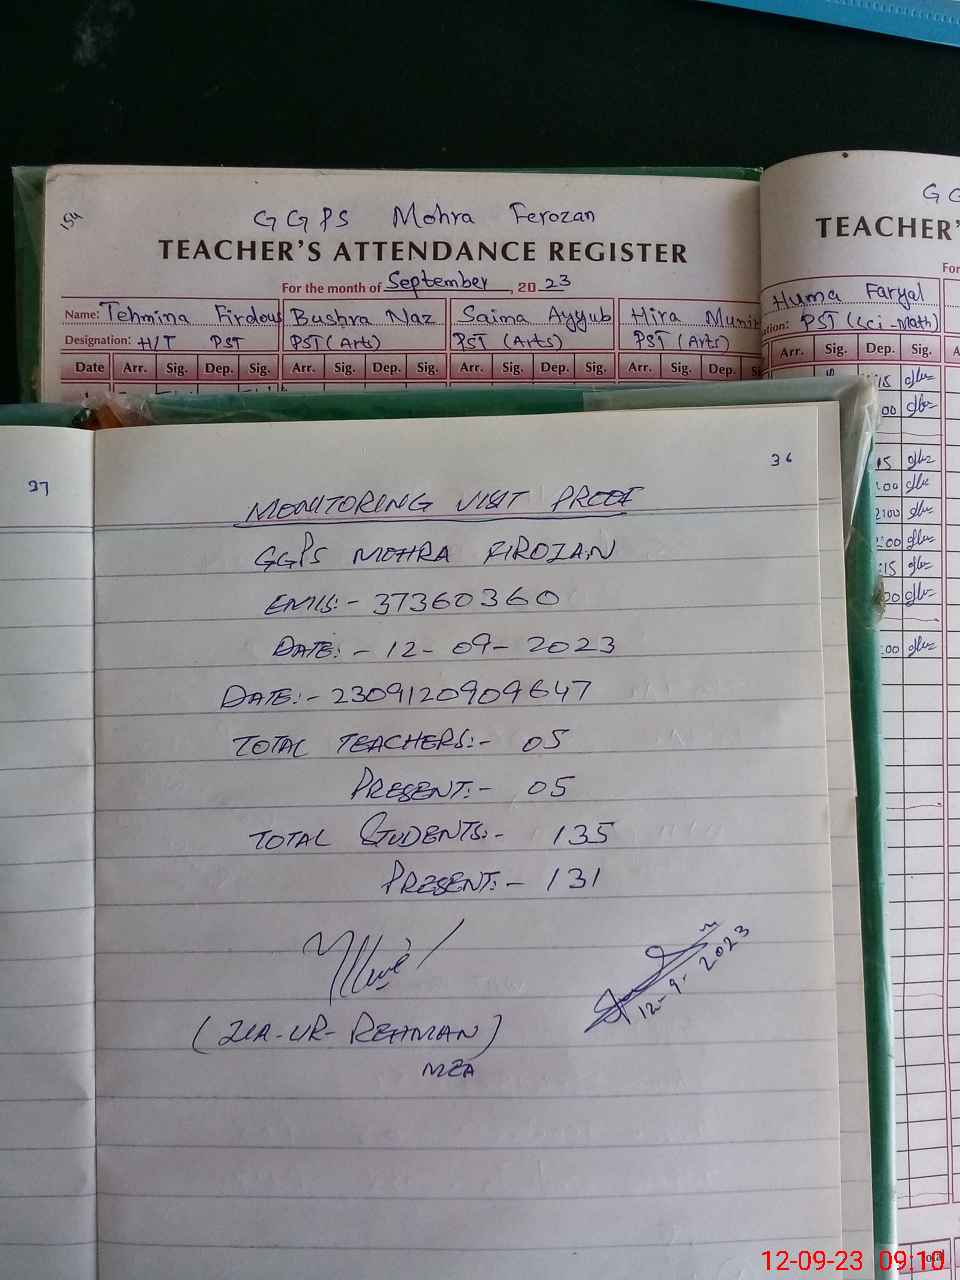 154
GGPS Mohra Ferozan
TEACHER'S ATTENDANCE REGISTER
For the month of September, 2023
Name: Tehmina Firdous Bushra Naz Saima Ayyub Hira Munir
Designation: H/T PST PST (Arts) PST (Arts) PST (Arts)
Date Arr. Sig. Dep. Sig. Arr. Sig. Dep. Sig. Arr. Sig. Dep. Sig. Arr. Sig. Dep. Si
GG
TEACHER'
For
Huma Faryal
ation: PST (Sci-Math)
Arr. Sig. Dep. Sig. A
:15
00
15
:00
2:00
:00
:15
00
:00
37
36
MONITORING VISIT PROOF
GGPS MOHRA FIROZAN
EMIS:- 37360360
DATE:- 12-09-2023
DATE:- 2309120909647
TOTAL TEACHERS:- 05
PRESENT:- 05
TOTAL STUDENTS:- 135
PRESENT:- 131
12-9-2023
(ZIA-UR-REHMAN)
MEA
Total
12-09-23 09:10